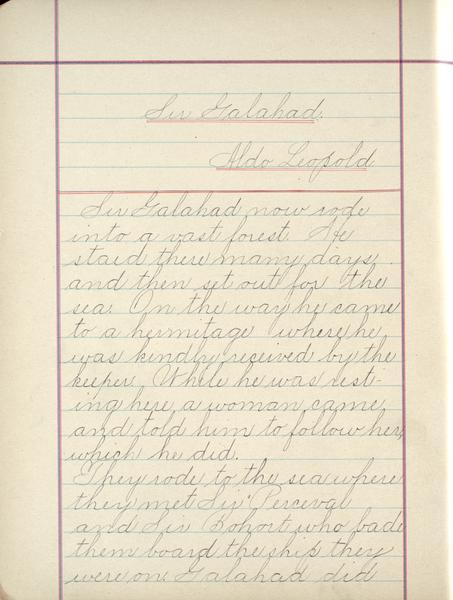 Sir Galahad.
Aldo Leopold
Sir Galahad now rode
into a vast forest. He
staid there many days
and then set out for the
sea. On the way he came
to a hermitage where he
was kindly received by the
keeper. While he was rest-
ing here a woman came
and told him to follow her,
which he did.
They rode to the sea where
they met Sir Perceval
and Sir Bohort who bade
them board the ship they
were on. Galahad did